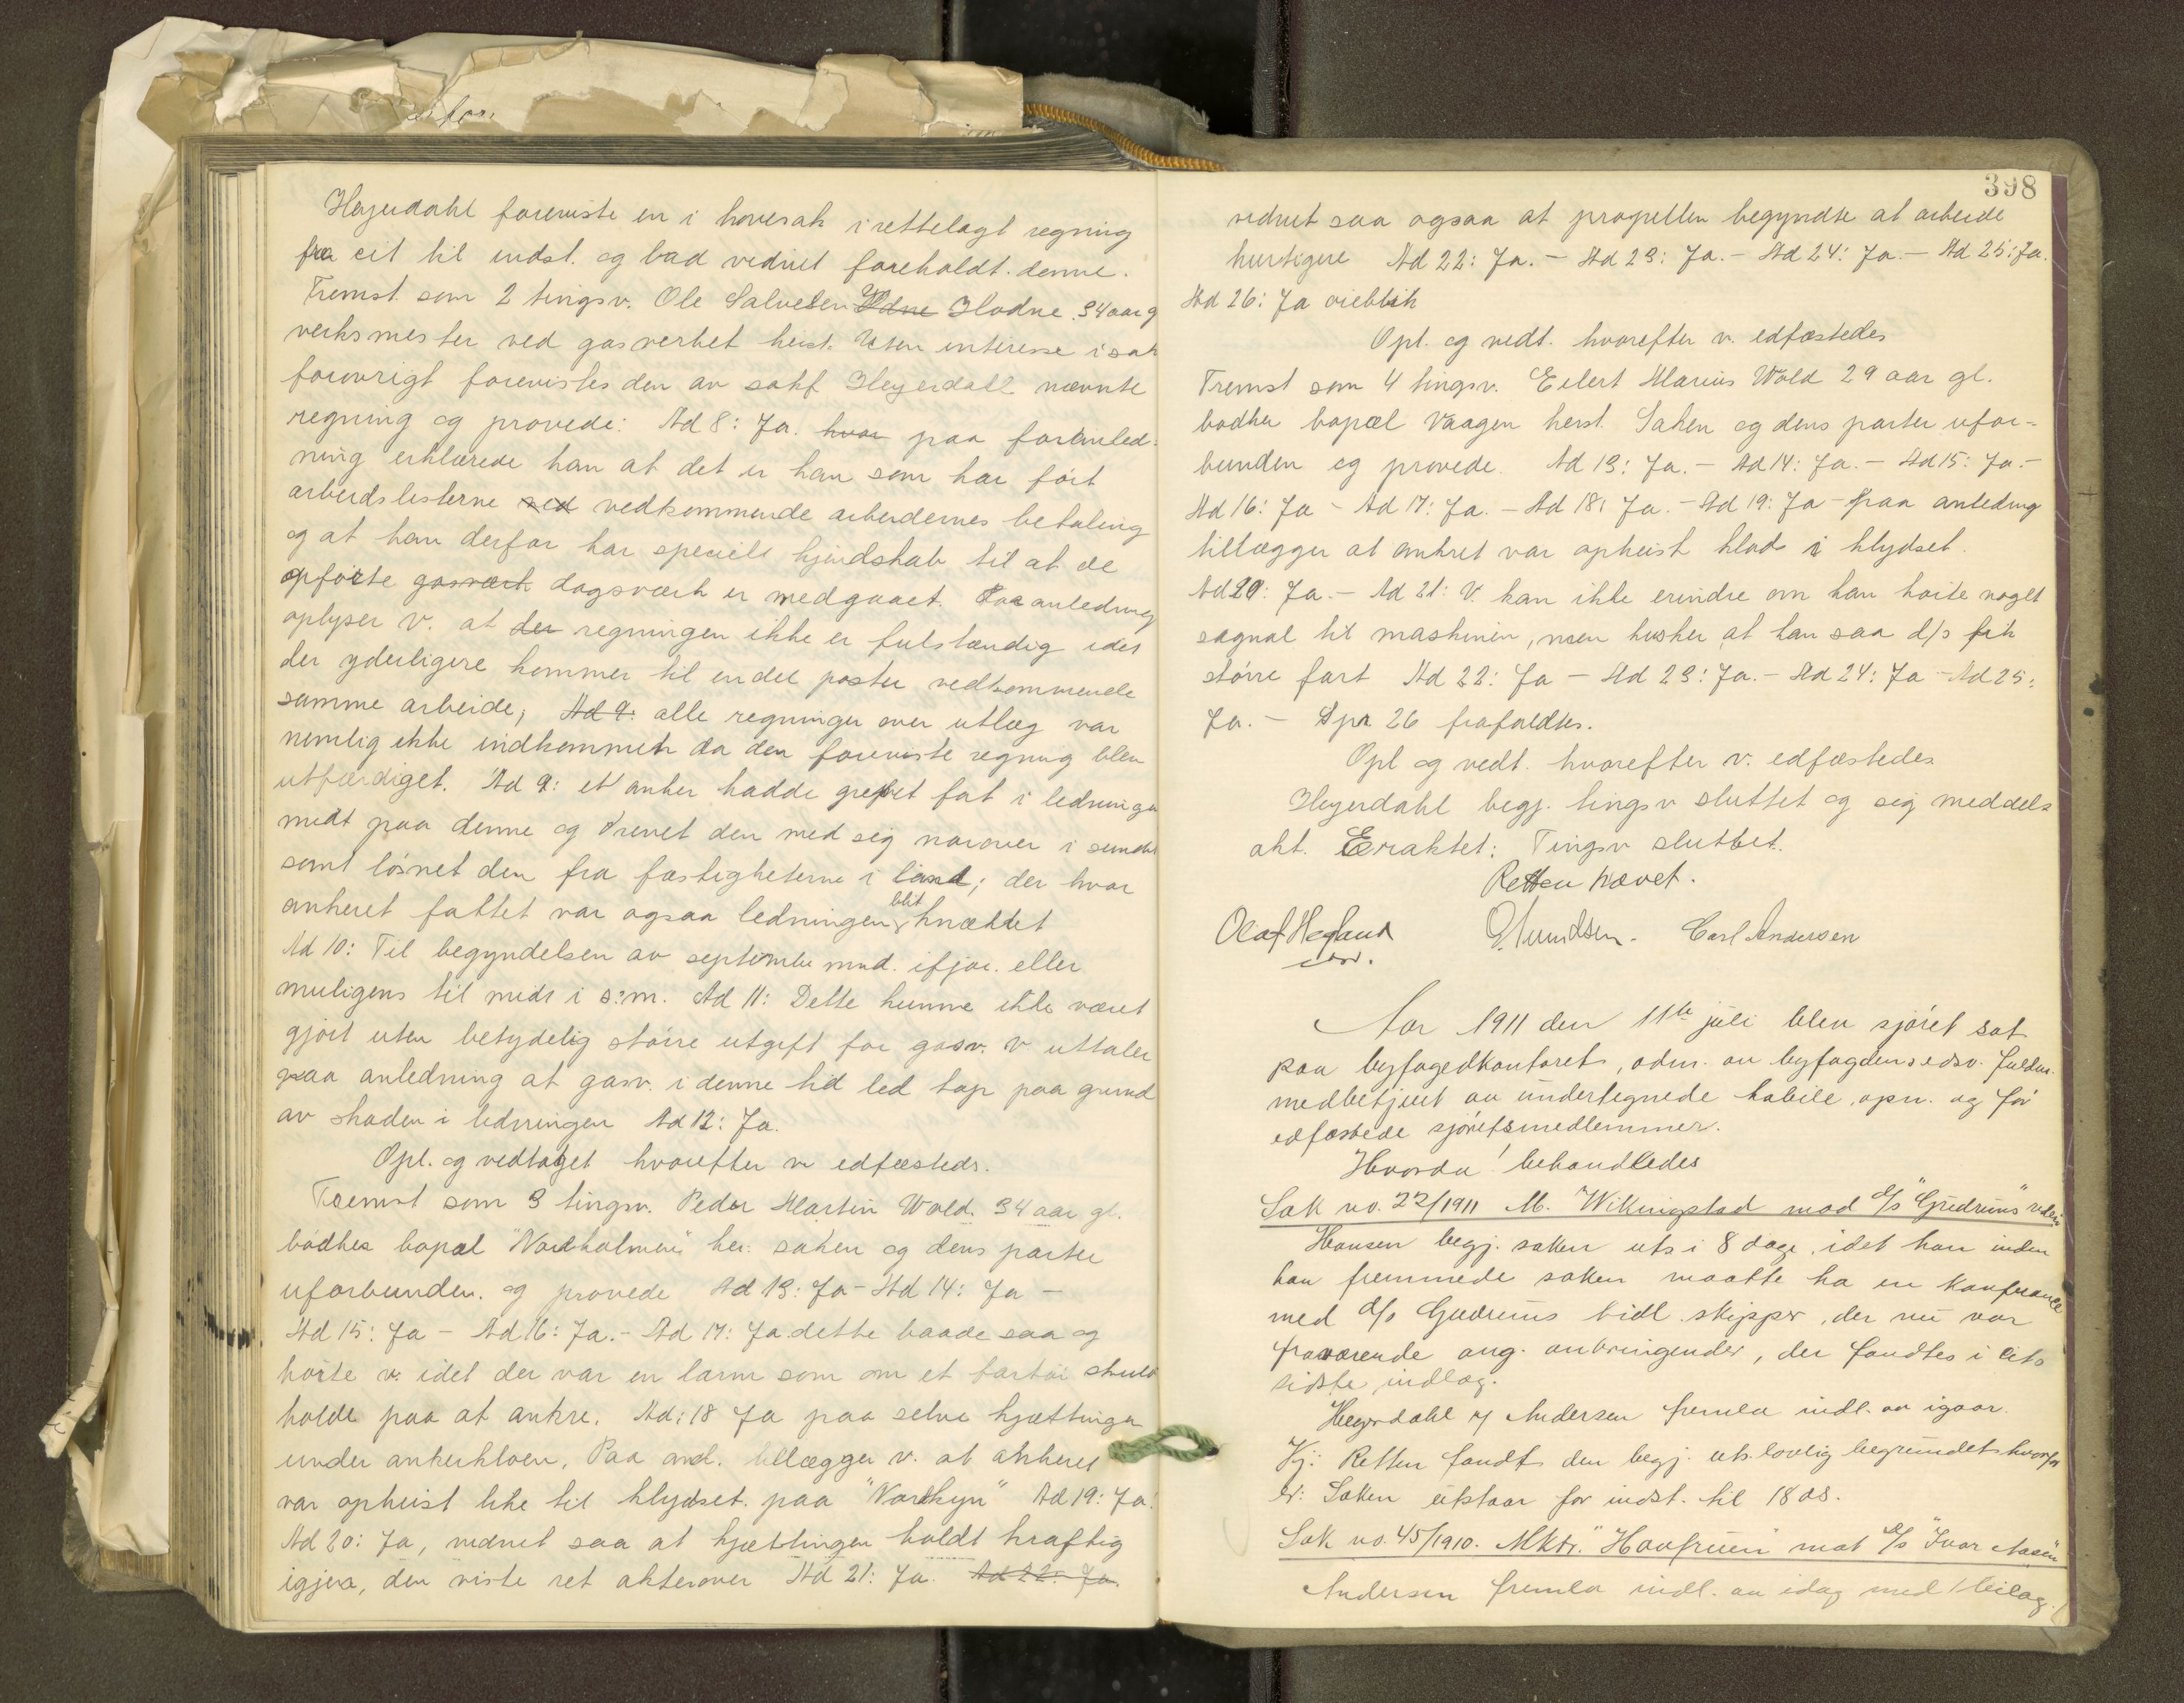 Heyerdahl foreviste en i hovesak i rettelagt regning
fra cit til indst. og bad vidnet foreholdt denne.
Fremst. som 2 tingsv. Ole Salvesen Hodne 34 aar g
verksmester ved gasverket herst. Uten interesse i sak
forøvrigt forevistes den av sakf Heyerdahl nævnte
regning og provede: Ad 8: Ja. hvor paa foranled-
ning erklærede han at det er han som har ført
arbeidslisterne ved vedkommende arbeidernes betaling
og at han derfor har speciell kjendskab til at de
opførte gasværk dagsværk er medgaaet. Paa anledning
oplyser v. at der regningen ikke er fulstændig idet
der yderligere kommer til endel poster vedkommende
samme arbeide; Ad 9: alle regninger over utlæg var
nemlig ikke indkommet da den foreviste regning blev
utfærdiget. Ad 9: et anker hadde grepet fat i ledningen
midt paa denne og drevet den med sig norover i sundet
samt løsnet den fra fæstigheterne i land; der hvor
ankeret fattet var ogsaa ledningen blit knækket
Ad 10: Til begyndelsen av september mnd. ifjor. eller
muligens til midt i s.m. Ad 11: Dette kunne ikke været
gjort uten betydelig større utgift for gasv. v uttaler
paa anledning at gasv. i denne tid led tap paa grund
av skaden i ledningen Ad 12: Ja.
Opl. og vedtaget hvorefter v. edfæstedes.
Fremst som 3 tingsv. Peder Martin Wold. 34 aar gl.
bødker bopæl "Nordholmen" her. saken og dens parter
uforbunden. og provede Ad 13: Ja - Ad 14: Ja -
Ad 15: Ja - Ad 16: Ja. - Ad 17: Ja dette baade saa og
hørte v. idet der var en larm som om et fartøi skuld
holde paa at ankre. Ad: 18 Ja paa selve kjættingen
under ankerkloen. Paa anl. tillægger v. at ankeret
var opheist like til klydset. paa "Nordkyn" Ad 19: Ja.
Ad 20: Ja, vidnet saa at kjættingen holdt kraftig
igjen, den viste ret akterover Ad 21: Ja. Ad 22: Ja.
398
vidnet saa ogsaa at propellen begyndte at arbeide
hurtigere Ad 22: Ja. - Ad 23: Ja. - Ad 24: Ja. - Ad 25: Ja.
Ad 26: Ja øieblik
Opl. og vedt. hvorefter v. edfæstedes
Fremst som 4 tingsv. Eilert Marius Wold 29 aar gl.
bødker bopæl Vaagen herst. Saken og dens parter ufor-
bunden og provede. Ad 13: Ja. - Ad 14: Ja. - Ad 15: Ja. -
Ad 16: Ja - Ad 17: Ja. - Ad 18: Ja. - Ad 19: Ja - paa anledning
tillægger at ankret var opheist klods i klydset.
Ad 20: Ja. - Ad 21: V. kan ikke erindre om han hørte noget
sagnal til maskinen, men husker at han saa d/s fik
større fart Ad 22: Ja - Ad 23: Ja. - Ad 24: Ja - Ad 25:
Ja. - Spr 26 frafaldtes.
Opl og vedt. hvorefter v. edfæstedes
Heyerdahl begj. tingsv sluttet og sig meddelt
akt. Eraktet: Tingsv sluttet.
Retten hævet.
Olaf Hegland
O. Amundsen. Carl Andersen
Aar 1911 den 11te juli blev sjøret sat
paa byfogedkontoret, adm. av byfogdens edsv. fuldm.
medbetjent av undertegnede habile, opn. og før
edfæstede sjøretsmedlemmer.
Hvorda! behandledes
Sak no. 22/1911 M. "Wikingstad mod d/s "Gudrun's" rederi
Hansen begj. saken uts i 8 dage, idet han inden
han fremmede saken maatte ha en konferance
med d/s Gudruns tidl. skipper, der nu var
fraværende ang. anbringender, der fandtes i cits
sidste indlæg.
Heyerdahl v/ Andersen fremla indl. av igaar.
Kj: Retten fandt den begj. uts. lovlig begrundet hvorfor
er: Saken utstaar for indst. til 18 ds.
Sak no. 45/1910. Mktr. "Havfruen" mot d/s "Ivar Aasen"
Andersen fremla indl. av idag med 1 bilag.